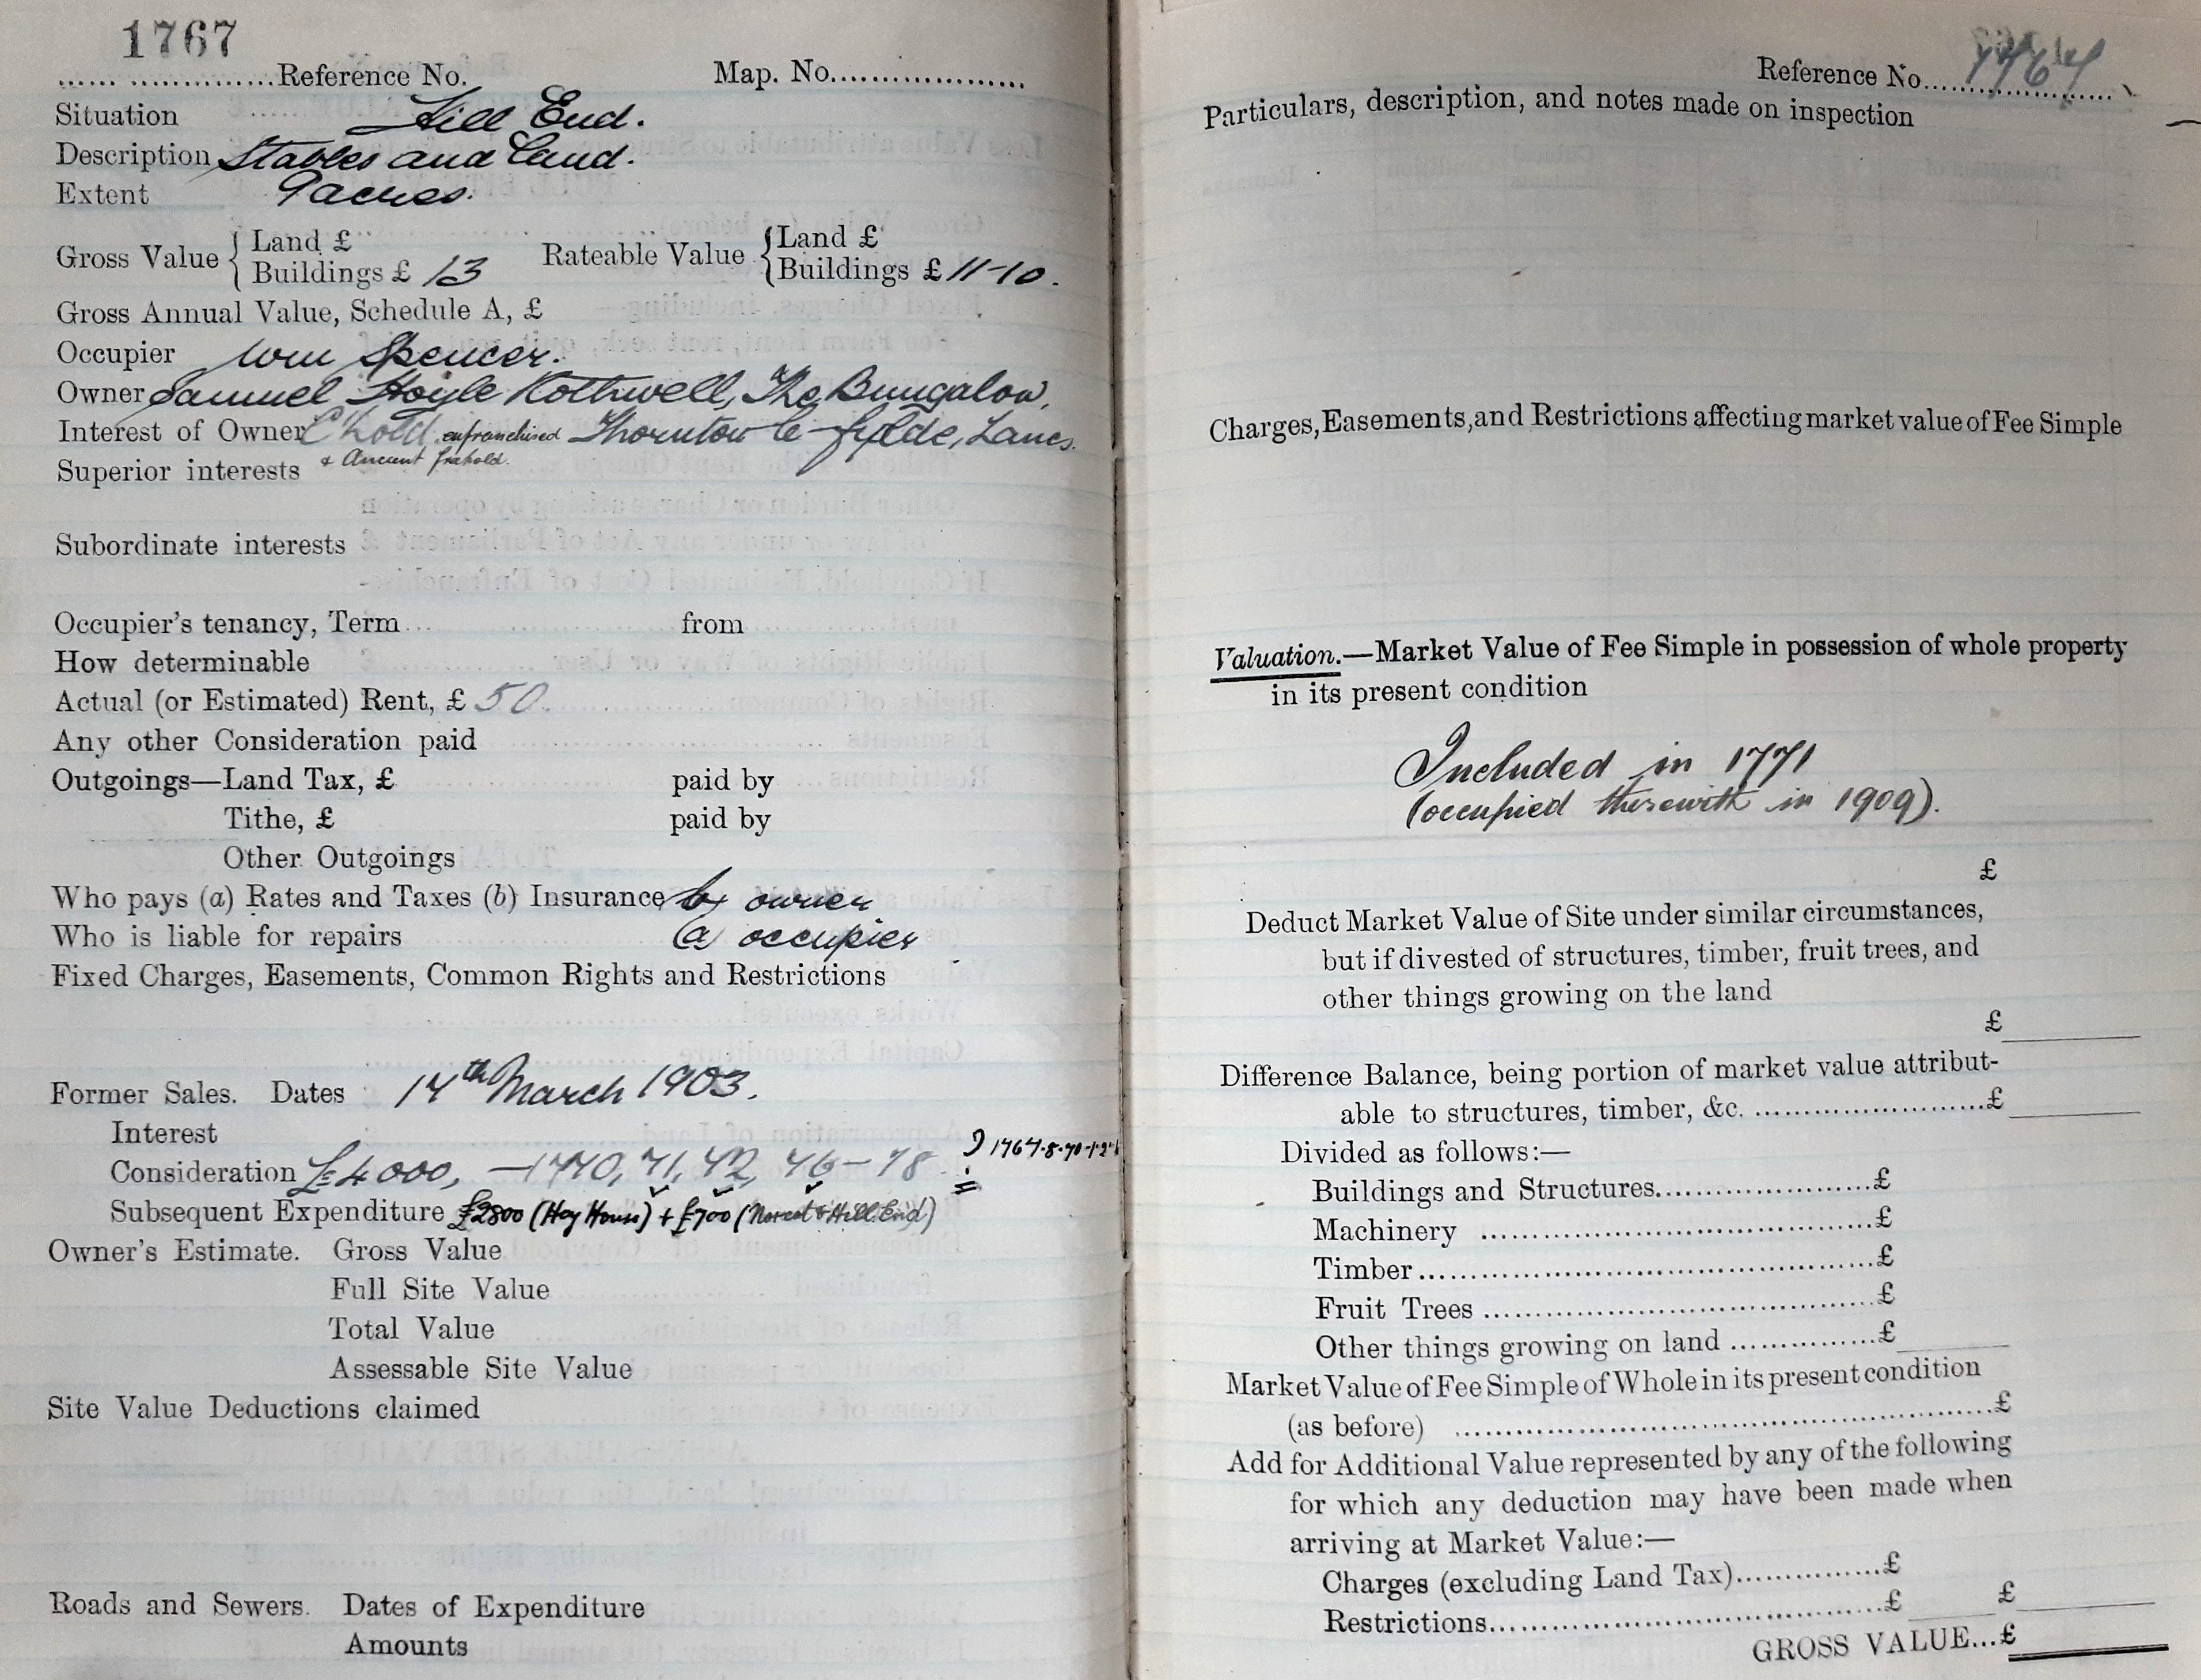 1767
...... ..............Reference No. Map. No..................
Situation Hill End.
Description Stables and Land.
Extent 9 acres.
Gross Value { Land £ Rateable Value { Land £
Buildings £ 13 Buildings £ 11-10.
Gross Annual Value, Schedule A, £
Occupier Wm Spencer.
Owner Samuel Hoyle Rothwell, The Bungalow,
Interest of Owner C'hold enfranchised Thornton le Fylde, Lancs.
& Ancient freehold.
Superior interests
Subordinate interests
Occupier's tenancy, Term from
How determinable
Actual (or Estimated) Rent, £ 50.
Any other Consideration paid
Outgoings—Land Tax, £ paid by
Tithe, £ paid by
Other Outgoings
Who pays (a) Rates and Taxes (b) Insurance b) owner
Who is liable for repairs (a) occupier
Fixed Charges, Easements, Common Rights and Restrictions
Former Sales. Dates 14th March 1903.
Interest
Consideration £4000, —1770, 71, 72, 76-78
Subsequent Expenditure £2800 (Hey House) + £700 ( Hill End)
Owner's Estimate. Gross Value
Full Site Value
Total Value
Assessable Site Value
Site Value Deductions claimed
Roads and Sewers. Dates of Expenditure
Amounts
Reference No. 1767
Particulars, description, and notes made on inspection
Charges, Easements, and Restrictions affecting market value of Fee Simple
Valuation.—Market Value of Fee Simple in possession of whole property
in its present condition
Included in 1771
(occupied therewith in 1909).
£
Deduct Market Value of Site under similar circumstances,
but if divested of structures, timber, fruit trees, and
other things growing on the land
£
Difference Balance, being portion of market value attribut-
able to structures, timber, &c. ..........................£
Divided as follows:—
Buildings and Structures......................£
Machinery .......................................£
Timber.............................................£
Fruit Trees .......................................£
Other things growing on land ...............£
Market Value of Fee Simple of Whole in its present condition
(as before) .....................................................£
Add for Additional Value represented by any of the following
for which any deduction may have been made when
arriving at Market Value:—
Charges (excluding Land Tax)...............£
Restrictions.......................................£ £
GROSS VALUE...£